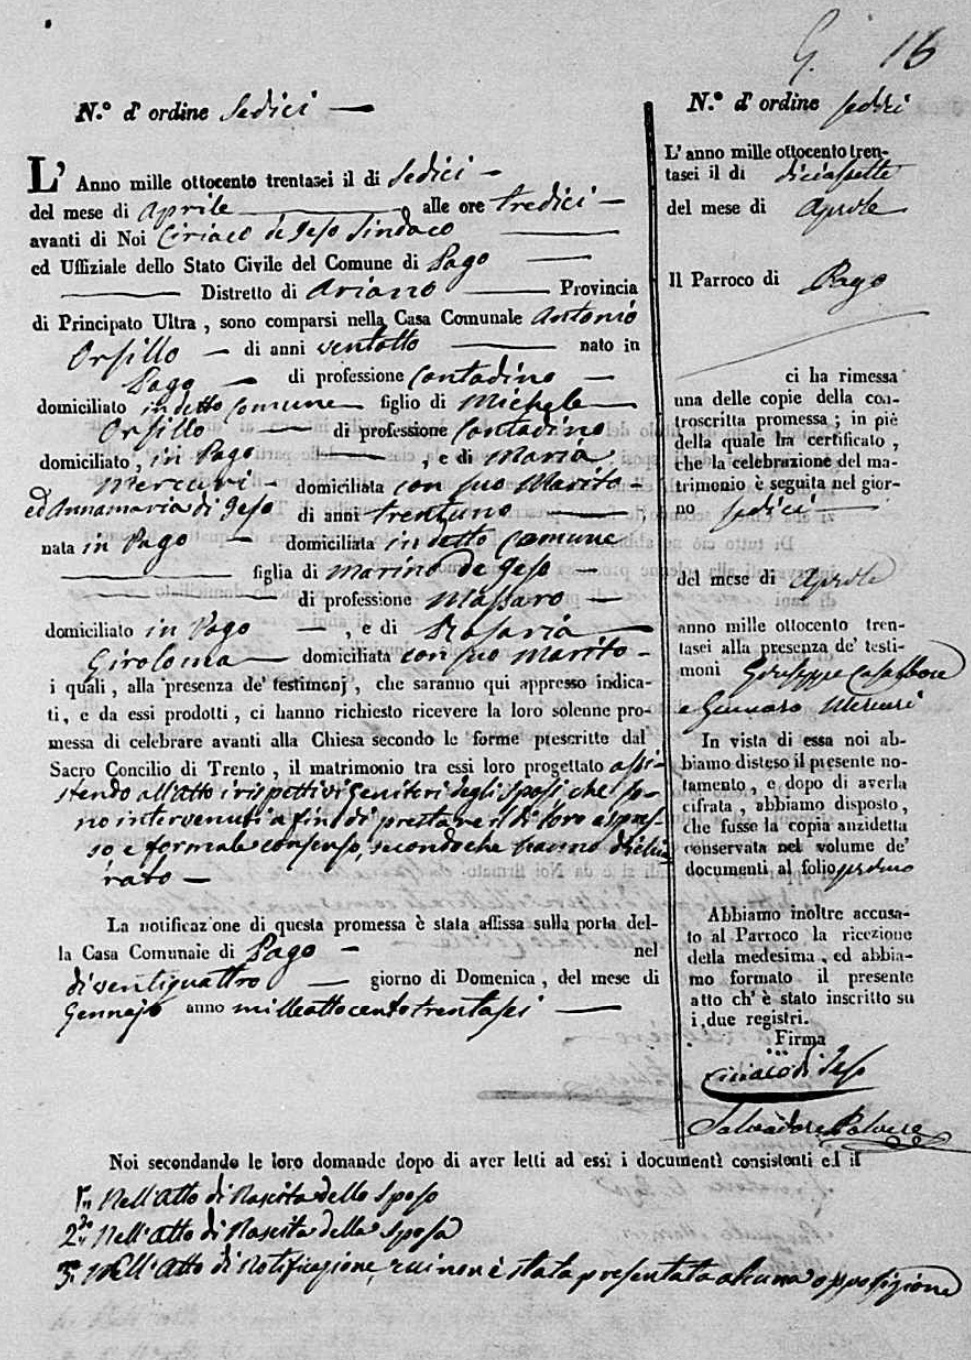 G. 16
N.º d' ordine Sedici
L' Anno mille ottocento trentasei il di Sedici
del mese di Aprile alle ore tredici
avanti di Noi Ciriaco di Geso Sindaco
ed Uffiziale dello Stato Civile del Comune di Pago
Distretto di Ariano Provincia
di Principato Ultra, sono comparsi nella Casa Comunale Antonio
Orsillo di anni ventotto nato in
Pago di professione Contadino
domiciliato in detto comune figlio di Michele
Orsillo di professione Contadino
domiciliato, in Pago, e di Maria
Mercuri domiciliata con suo Marito
ed Annamaria di Geso di anni trentuno,
nata in Pago domiciliata in detto Comune
figlia di Marino de Geso
di professione Massaro
domiciliato in Pago, e di Rosaria
Giroloma domiciliata con suo marito
i quali, alla presenza de' testimonj, che saranno qui appresso indica-
ti, e da essi prodotti, ci hanno richiesto ricevere la loro solenne pro-
messa di celebrare avanti alla Chiesa secondo le forme prescritte dal
Sacro Concilio di Trento, il matrimonio tra essi loro progettato assi-
stendo all'atto i rispettivi Genitori degli Sposi che so-
no intervenuti a fin di prestare il di loro espres-
so e formale consenso, secondoche hanno dichia
rato
La notificazione di questa promessa è stata affissa sulla porta del-
la Casa Comunale di Pago nel
di ventiquattro giorno di Domenica, del mese di
Gennajo anno milleottocentotrentasei
Noi secondando le loro domande dopo di aver letti ad essi i documenti consistenti ed il
1.º Nell'Atto di Nascita dello Sposo
2.º Nell'Atto di Nascita della Sposa
3.º Nell'Atto di Notificazione, cui non è stata presentata alcuna opposizione
N.º d' ordine sedici
L' anno mille ottocento tren-
tasei il di diciassette
del mese di Aprile
Il Parroco di Pago
ci ha rimessa
una delle copie della con-
troscritta promessa; in piè
della quale ha certificato,
che la celebrazione del ma-
trimonio è seguita nel gior-
no sedici
del mese di Aprile
anno mille ottocento tren-
tasei alla presenza de' testi-
moni Giuseppe Casalbore
e Gennaro Mercuri
In vista di essa noi ab-
biamo disteso il presente no-
tamento, e dopo di averla
cifrata, abbiamo disposto,
che fusse la copia anzidetta
conservata nel volume de'
documenti al folio primo
Abbiamo inoltre accusa-
to al Parroco la ricezione
della medesima, ed abbia-
mo formato il presente
atto ch' è stato inscritto su
i due registri.
Firma
Ciriaco di Geso
Salvadore Polvere